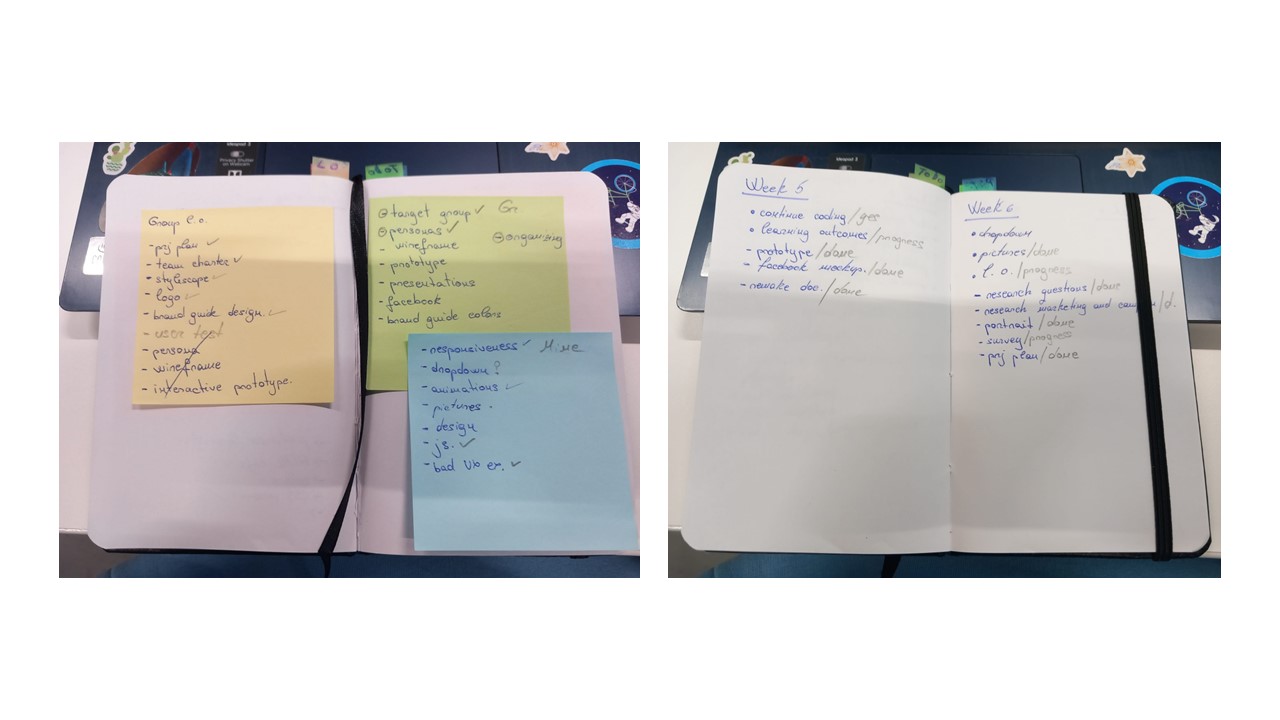 Privacy Shutter
on Webcam
Group l.o.
- prj plan ✓
- team charter ✓
• stylescape ✓
- logo ✓
- brand guide design. ✓
- user test
- persona
- wireframe
- interactive prototype.
target group ✓
personas ✓
- wireframe
organising
- prototype
- presentations
- facebook
- brand guide colors
- responsiveness ✓ Mine
- dropdown ?
- animations ✓
- pictures .
- design
- js. ✓
- bad UX ex. ✓
Week 5
• continue coding/yes
• learning outcomes/progress
- prototype/done
- facebook mockup./done
- remake doc./done
Week 6
• dropdown
• pictures/done
• l. o./progress
- research questions/done
- research marketing and /d.
- portrait/done
- survey/progress
- prj plan/done